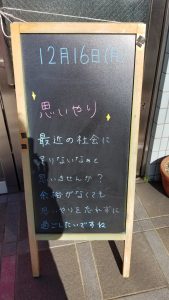 12月16日(月)
思いやり
最近の社会に
足りないなぁと
思いませんか?
余裕がなくても
思いやりを忘れずに
過ごしたいですね